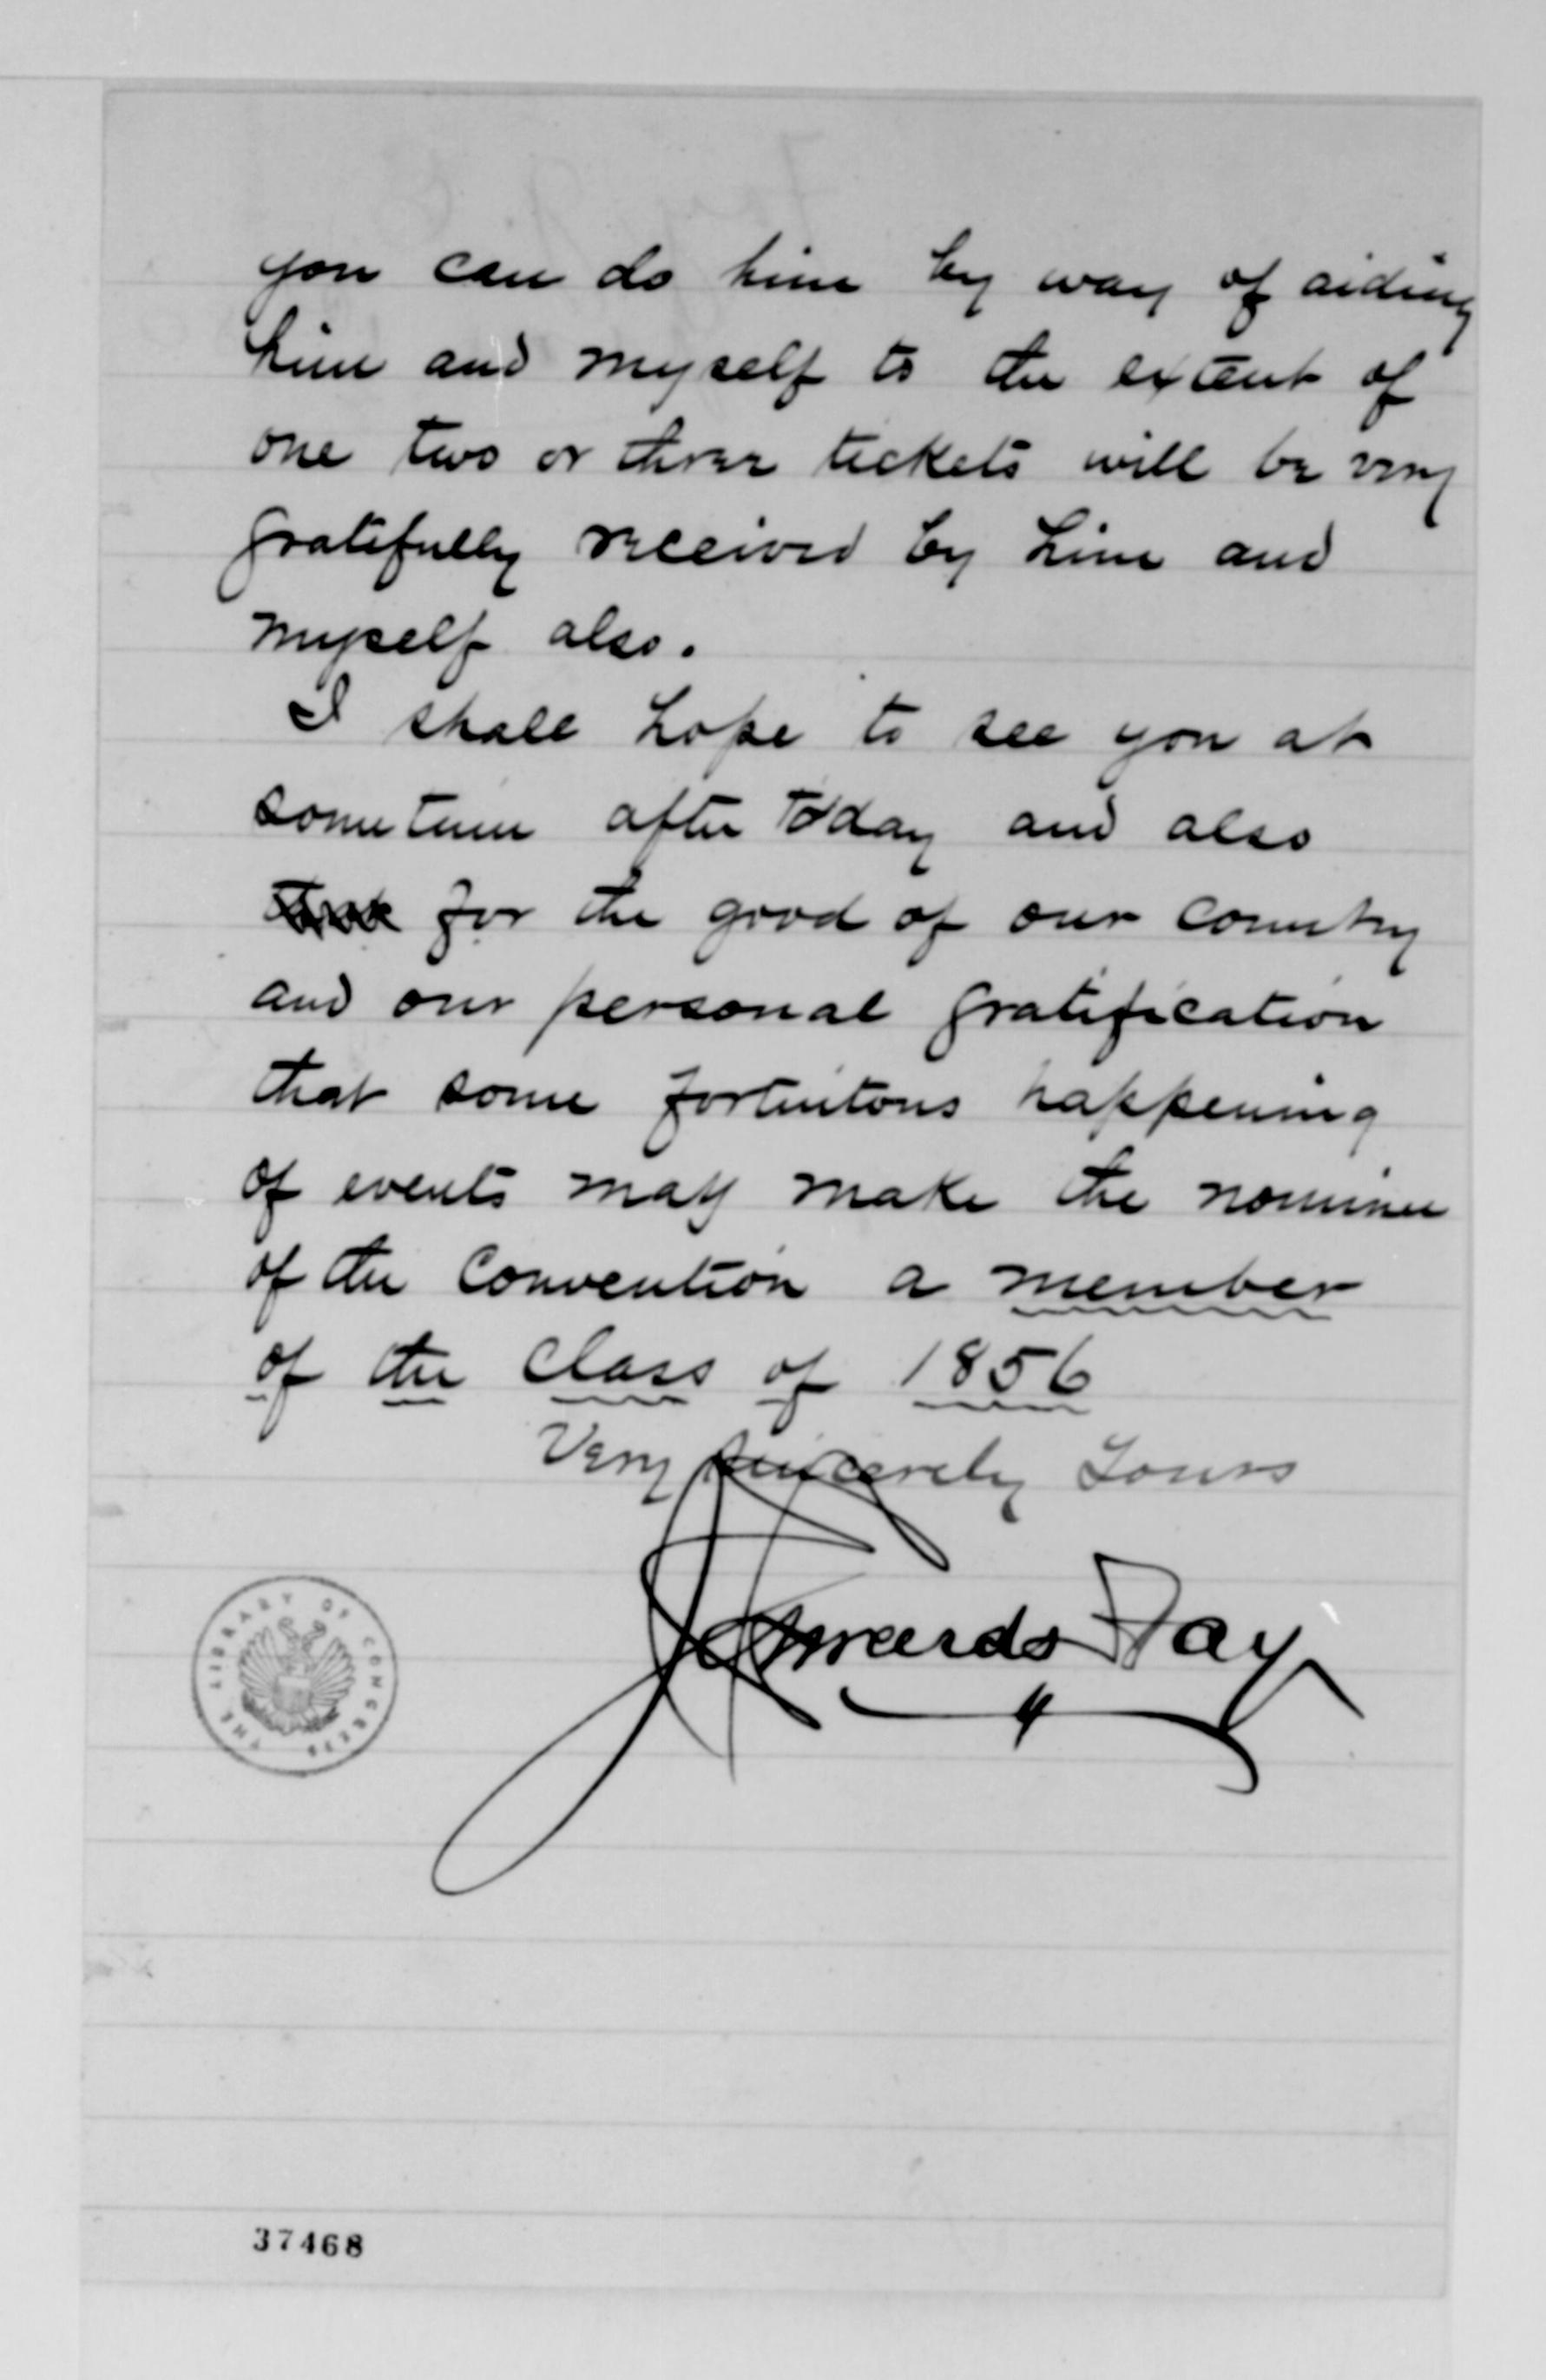 you can do him by way of aiding
him and myself to the extent of
one two or three tickets will be very
gratifully received by him and
myself also.
I shall hope to see you at
sometime after today and also
for the good of our country
and our personal gratification
that some fortuitous happening
of events may make the nominee
of the Convention a member
of the Class of 1856
Very sincerely Yours
Edwards Fay
THE LIBRARY OF CONGRESS
37468